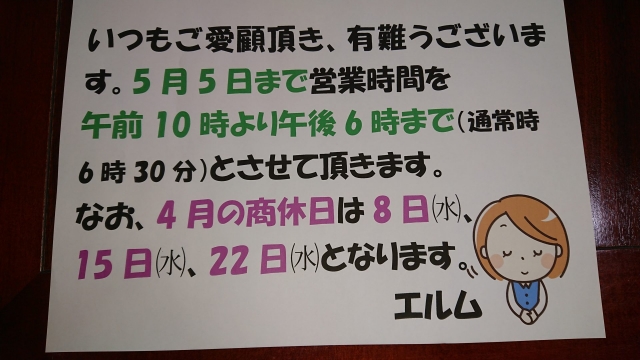 いつもご愛顧頂き、有難うございま
す。5月5日まで営業時間を
午前10時より午後6時まで(通常時
6時30分)とさせて頂きます。
なお、4月の商休日は8日㈬、
15日㈬、22日㈬となります。
エルム